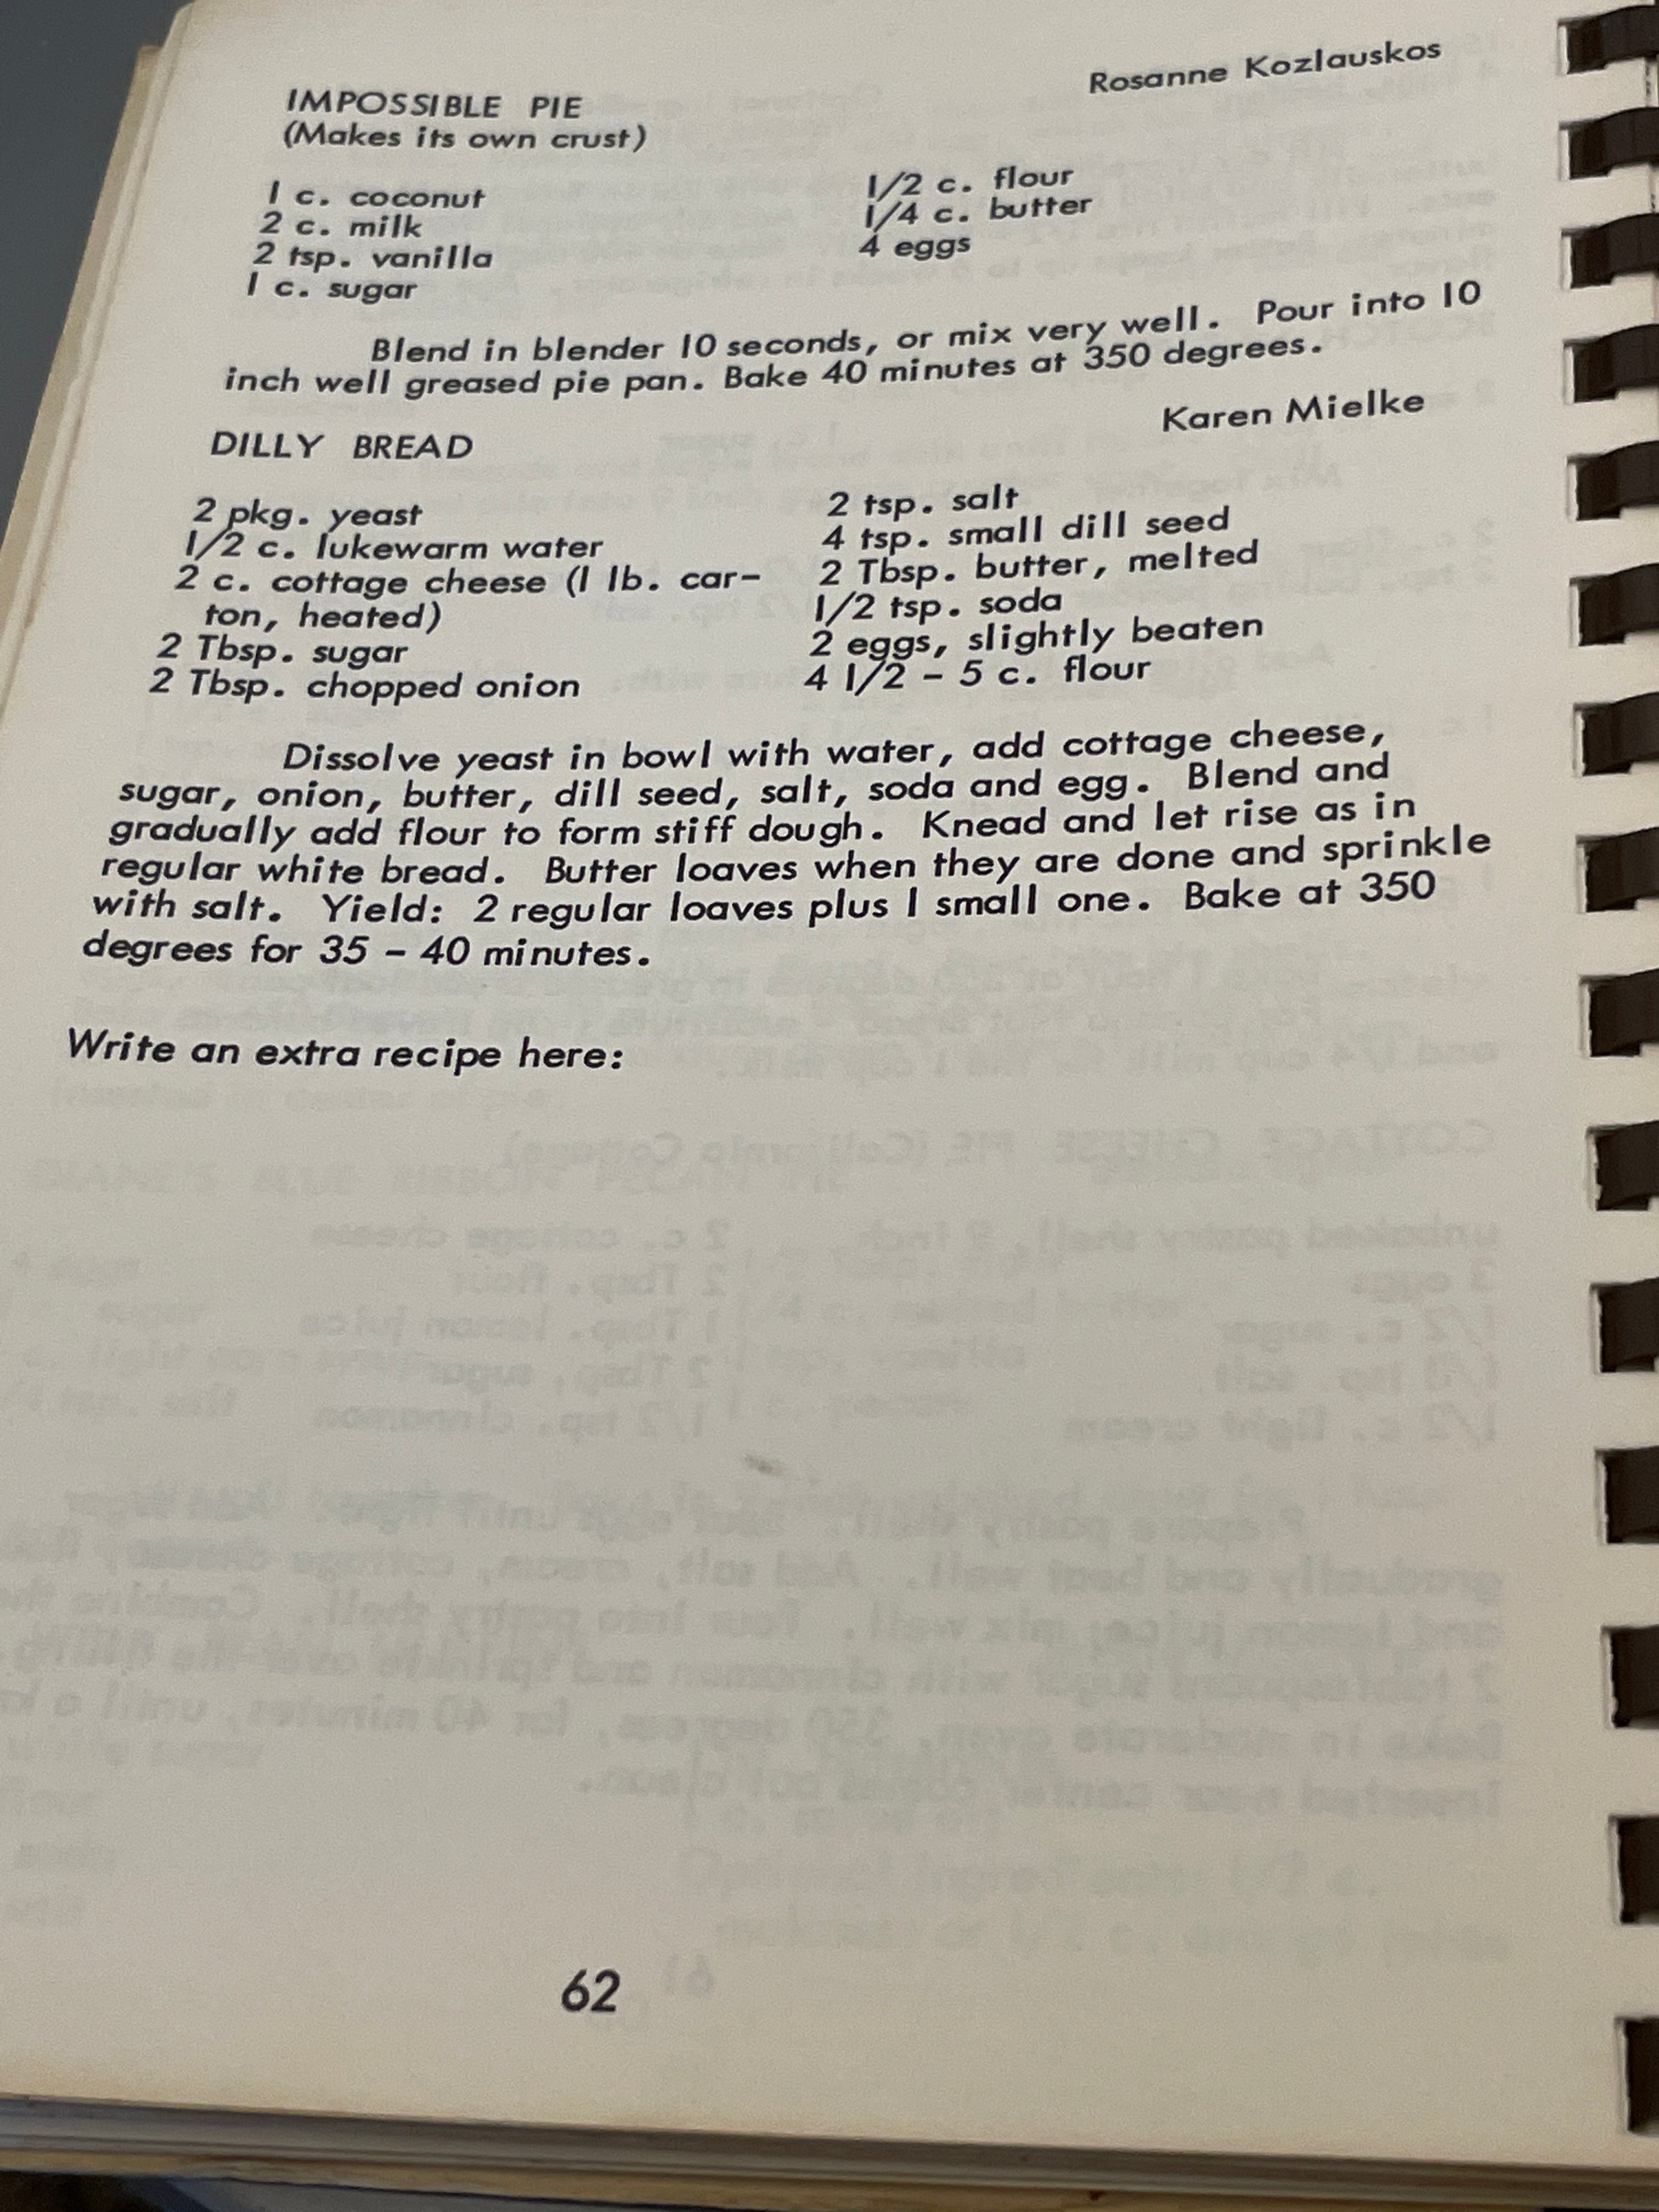 Rosanne Kozlauskos
IMPOSSIBLE PIE
(Makes its own crust)
1 c. coconut
2 c. milk
2 tsp. vanilla
1 c. sugar
1/2 c. flour
1/4 c. butter
4 eggs
Blend in blender 10 seconds, or mix very well. Pour into 10
inch well greased pie pan. Bake 40 minutes at 350 degrees.
Karen Mielke
DILLY BREAD
2 pkg. yeast
1/2 c. lukewarm water
2 c. cottage cheese (1 lb. car-
ton, heated)
2 Tbsp. sugar
2 Tbsp. chopped onion
2 tsp. salt
4 tsp. small dill seed
2 Tbsp. butter, melted
1/2 tsp. soda
2 eggs, slightly beaten
4 1/2 - 5 c. flour
Dissolve yeast in bowl with water, add cottage cheese,
sugar, onion, butter, dill seed, salt, soda and egg. Blend and
gradually add flour to form stiff dough. Knead and let rise as in
regular white bread. Butter loaves when they are done and sprinkle
with salt. Yield: 2 regular loaves plus 1 small one. Bake at 350
degrees for 35 - 40 minutes.
Write an extra recipe here:
62